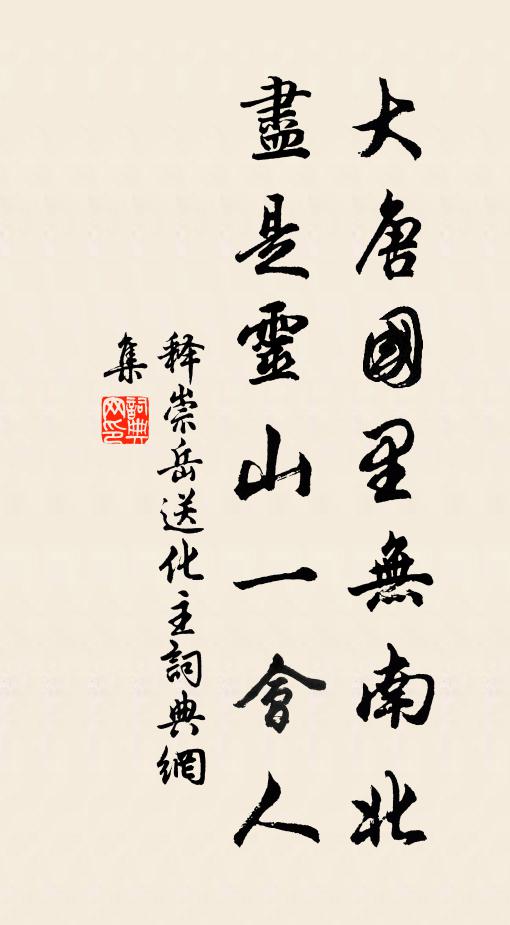 大唐國里無南北
盡是靈山一會人
释崇岳送化主詞典網
集
詞典
网印